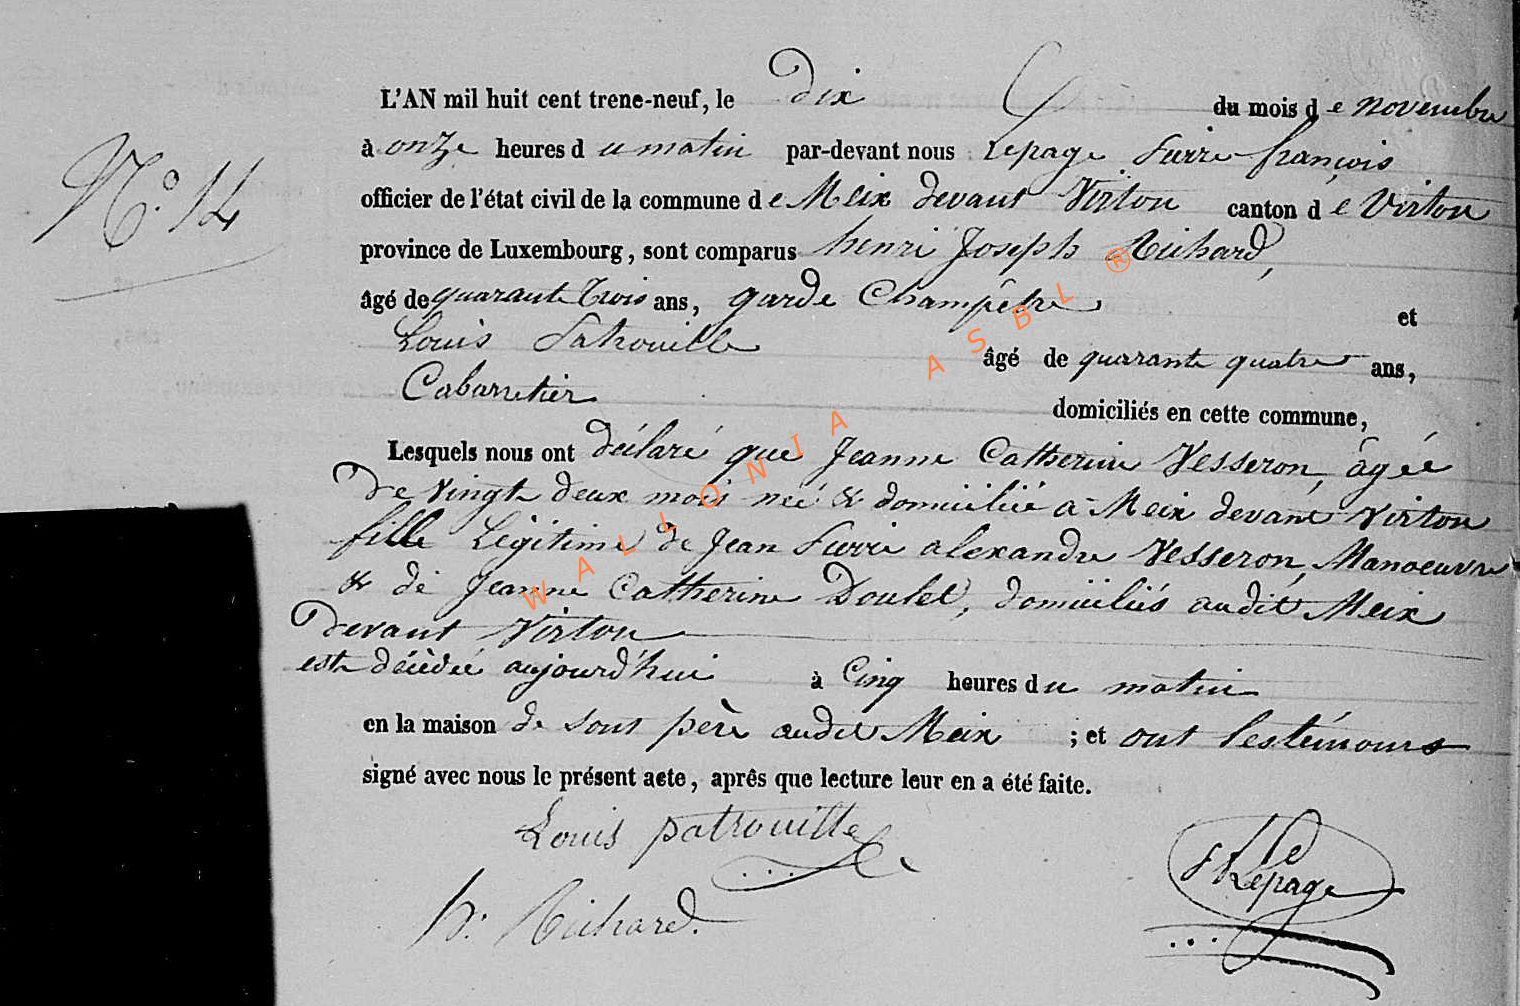 L'AN mil huit cent trene-neuf, le dix du mois de novembre
N.° 14
à onze heures du matin par-devant nous Lepage Pierre françois
officier de l'état civil de la commune de Meix devant Virton canton de Virton
province de Luxembourg, sont comparus henri Joseph Richard,
âgé de quarante trois ans, garde Champêtre et
Louis Patrouille âgé de quarante quatre ans,
Cabarretier domiciliés en cette commune,
Lesquels nous ont déclaré que Jeanne Catherine Vesseron, âgée
de vingt deux mois neé & domiciliée à Meix devant Virton
fille Légitime de Jean Pierre alexandre Vesseron, Manoeuvre
& de Jeanne Catherine Doulet, domiciliés audit Meix
Devant Virton
est décédée aujourd'hui à Cinq heures du matin
en la maison de sont père audit Meix ; et ont les témoins
signé avec nous le présent acte, après que lecture leur en a été faite.
Louis patrouille
h. Richard.
Lepage
WALLONIA ASBL ®